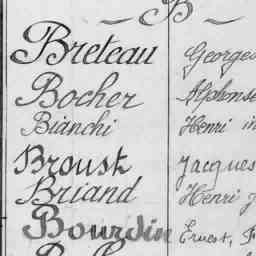 ~ B ~
Breteau Georges
Bocher Alphonse
Bianchi Henri
Broust Jacques
Briand Henri
Bourdin Ernest,